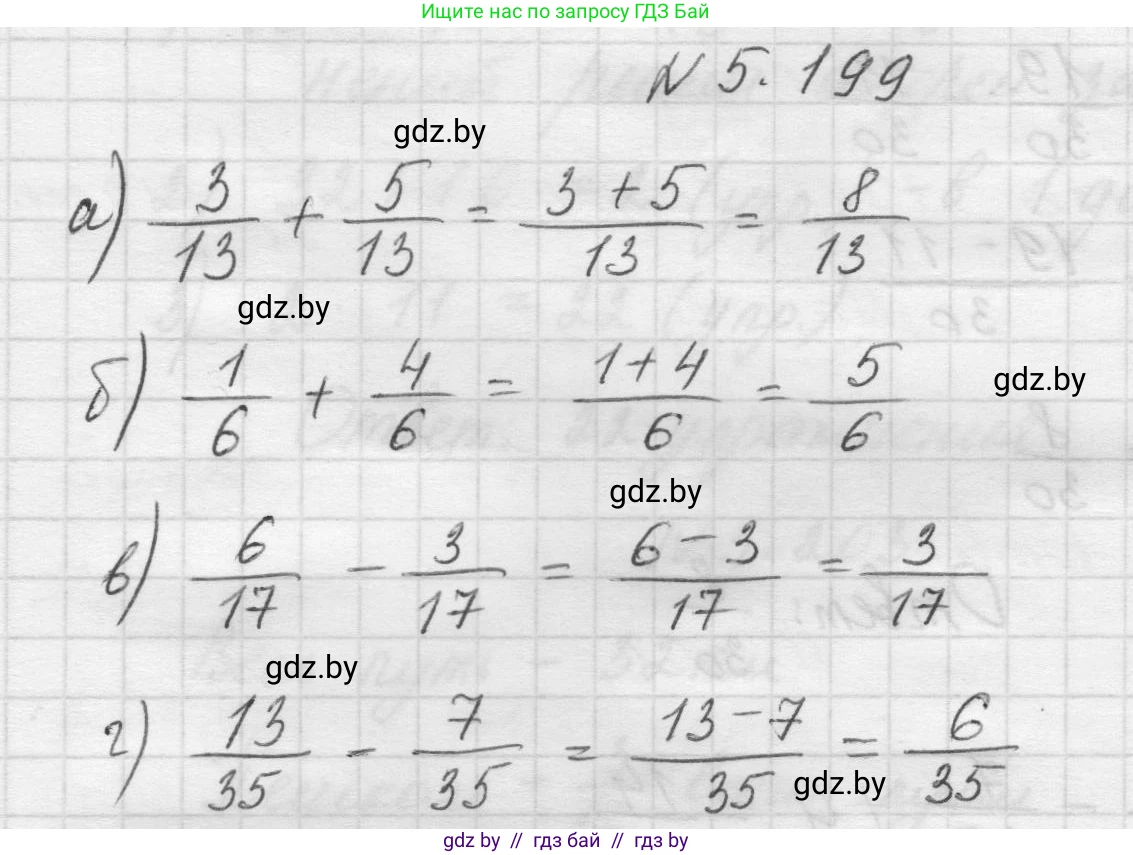 Ищите нас по запросу ГДЗ Бай
№ 5.199
gdz.by
а) 3/13 + 5/13 = 3 + 5/13 = 8/13
gdz.by
б) 1/6 + 4/6 = 1 + 4/6 = 5/6
gdz.by
gdz.by
в) 6/17 - 3/17 = 6 - 3/17 = 3/17
gdz.by
г) 13/35 - 7/35 = 13 - 7/35 = 6/35
gdz.by
gdz by // гдз бай // гдз by